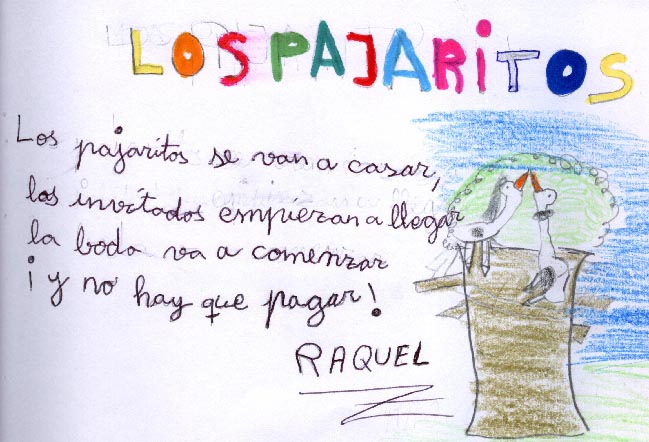 LOS PAJARITOS
Los pajaritos se van a casar,
los invitados empiezan a llegar
la boda va a comenzar
¡y no hay que pagar!
RAQUEL